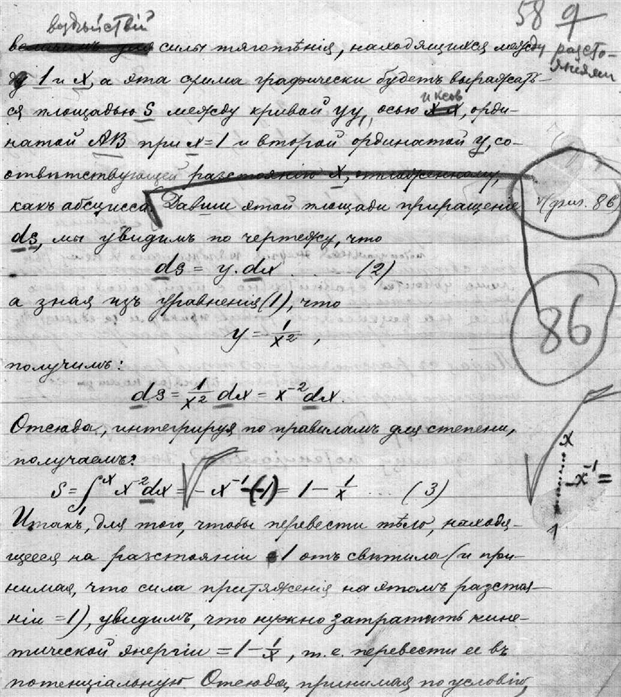 воздѣйствій 58 9
силы тяготѣнія, находящихся между разсто-
яніями
1 и x, а эта сумма графически будетъ выражать-
ся площадью S между кривой yy, осью иксов, орди-
натой AB при x=1 и второй ординатой y, со-
отвѣтствующей разстоянію x, отмѣренному,
какъ абсцисса. Давши этой площади приращеніе
ds, мы увидимъ по чертежу, что
ds = y.dx ..... (2)
а зная изъ уравненія (1), что
y = 1/x²,
получимъ:
ds = 1/x² dx = x⁻² dx.
Отсюда, интегрируя по правиламъ для степени,
получаемъ:
S = ∫ˣ x⁻² dx = - x⁻¹ -(-1) = 1 - 1/x .... (3)
Итакъ, для того, чтобы перевести тѣло, находя-
щееся на разстояніи 1 отъ свѣтила (и при-
нимая, что сила притяженія на этомъ разстоя-
ніи = 1), увидимъ, что нужно затратить кине-
тической энергіи = 1 - 1/x, т.е. перевести ее въ
потенціальную. Отсюда, принимая по условію,
фиг. 86
86
x
-x⁻¹ =
1